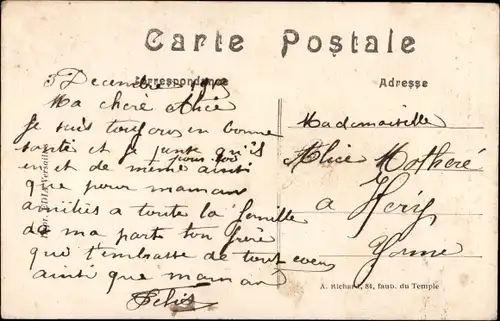 Carte Postale
Correspondance
Adresse
5 Decembre
Ma chere Alice
Je suis toujours en bonne
santé et je pense qu'il
en et de même pour toi ainsi
que pour maman
amitiés a toute la famille
de ma part ton frère
que t'embrasse de tout coeur
ainsi que maman
Mademoiselle
Alice Motheré
a Héry
Yonne
A. Richard, 84, faub. du Temple